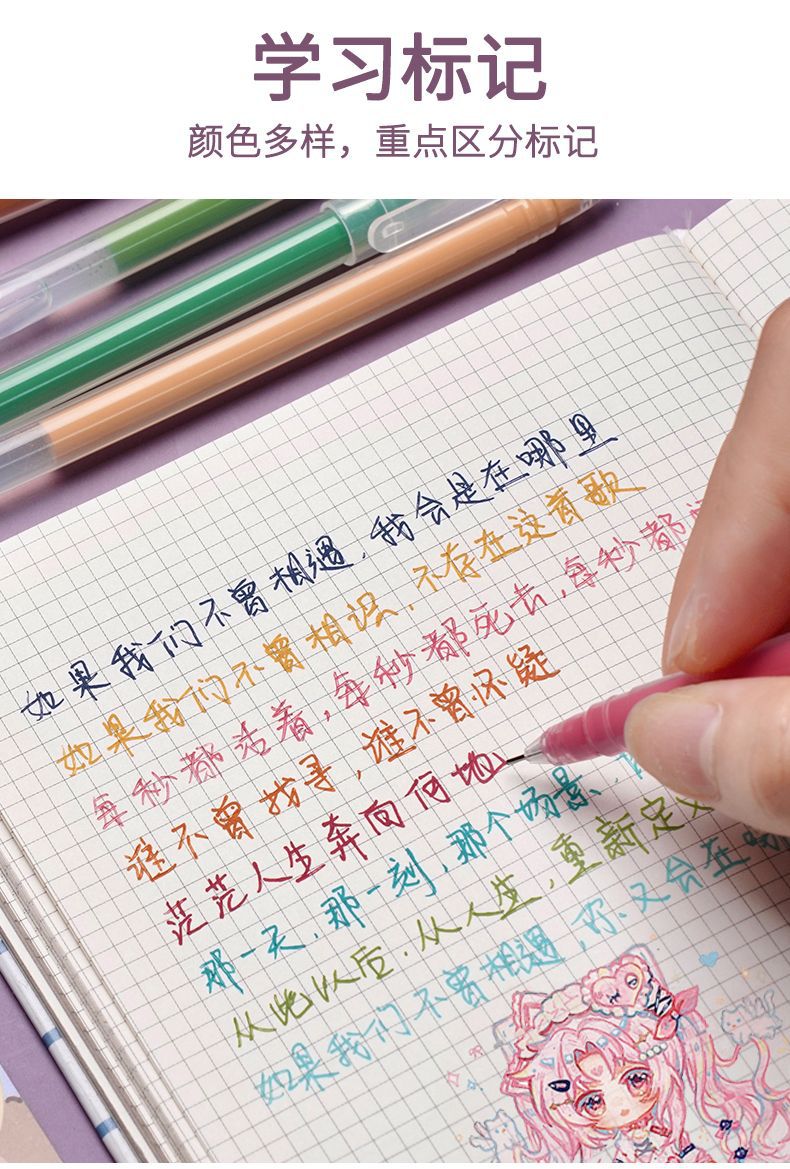 学习标记
颜色多样，重点区分标记
如果我们不曾相遇，我会是在哪里
如果我们不曾相识，不存在这首歌
每秒都活着，每秒都死去，每秒都
谁不曾找寻，谁不曾怀疑
茫茫人生奔向何地
那一天，那一刻，那个场景，
从此以后，从人生，重新定义
如果我们不曾相遇，你又会在哪